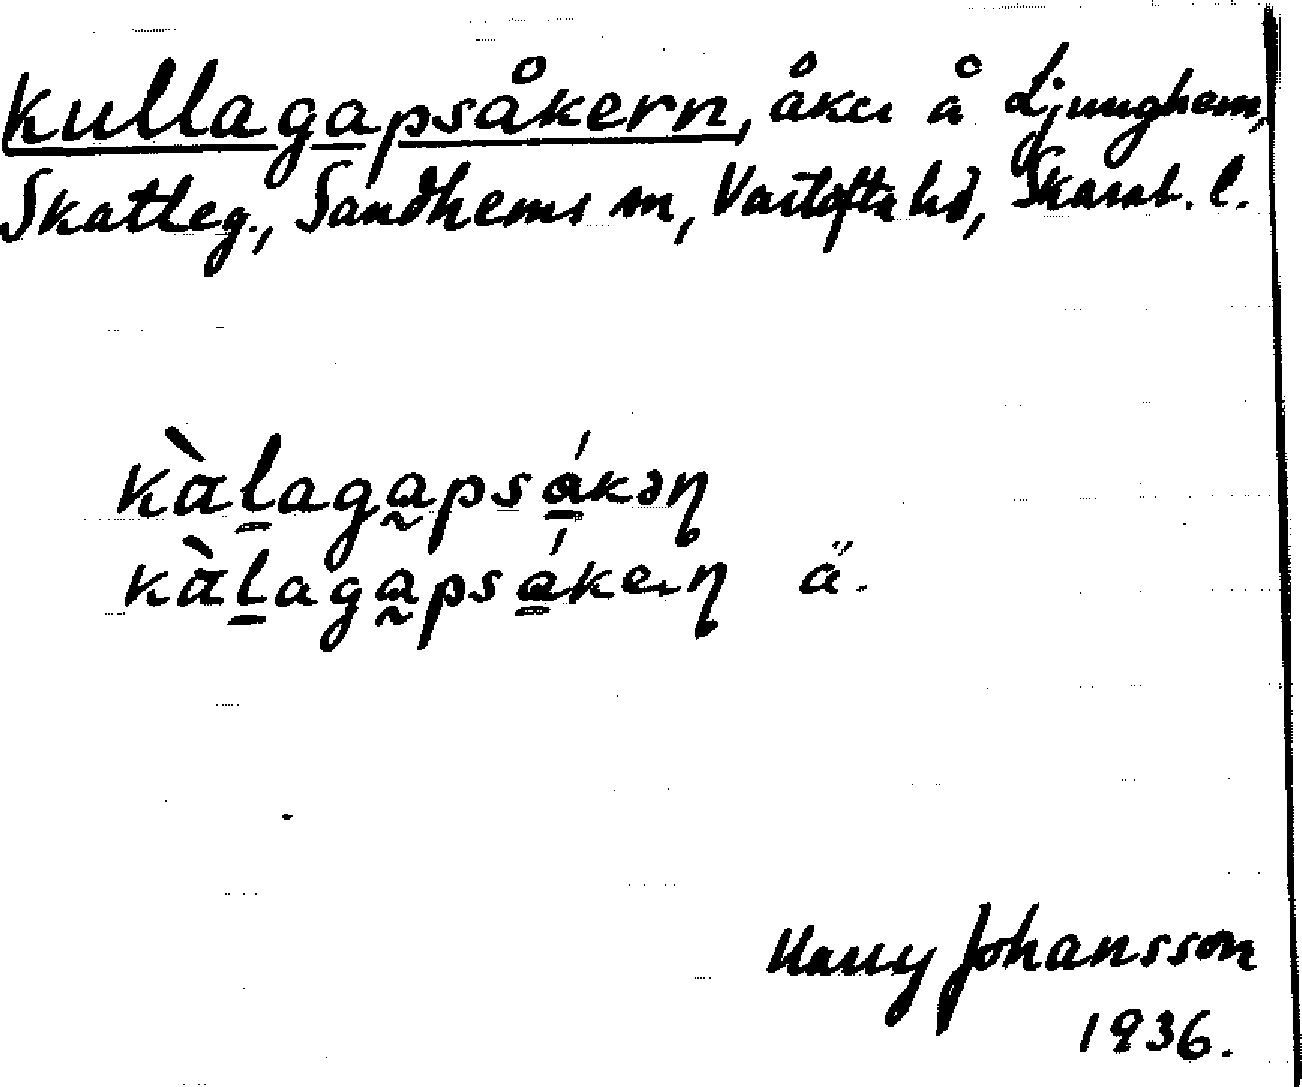 Kullagapsåkern, åker å Ljunghem,
Skatteg., Sandhems sn, Vartofta hd, Skarab. l.
kàl̠aga̰psá̠kəɳ
kàl̠aga̰psá̠keɹɳ ä.
Harry Johansson
1936.